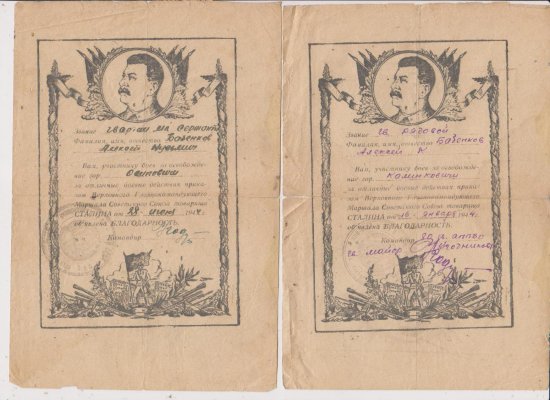 Звание гвардии мл. сержант
Фамилия, имя, отчество Баженков
Алексей
Вам, участнику боев за освобожде-
ние гор. Осиповичи
за отличные боевые действия приказом
Верховного Главнокомандующего
Маршала Советского Союза товарища
СТАЛИНА от 28 июня 1944
объявлена БЛАГОДАРНОСТЬ.
Командир
Звание гв. рядовой
Фамилия, имя, отчество Баженков
Алексей
Вам, участнику боев за освобожде-
ние гор. Калинковичи
за отличные боевые действия приказом
Верховного Главнокомандующего
Маршала Советского Союза товарища
СТАЛИНА от января 1944
объявлена БЛАГОДАРНОСТЬ.
Командир
гв. майор